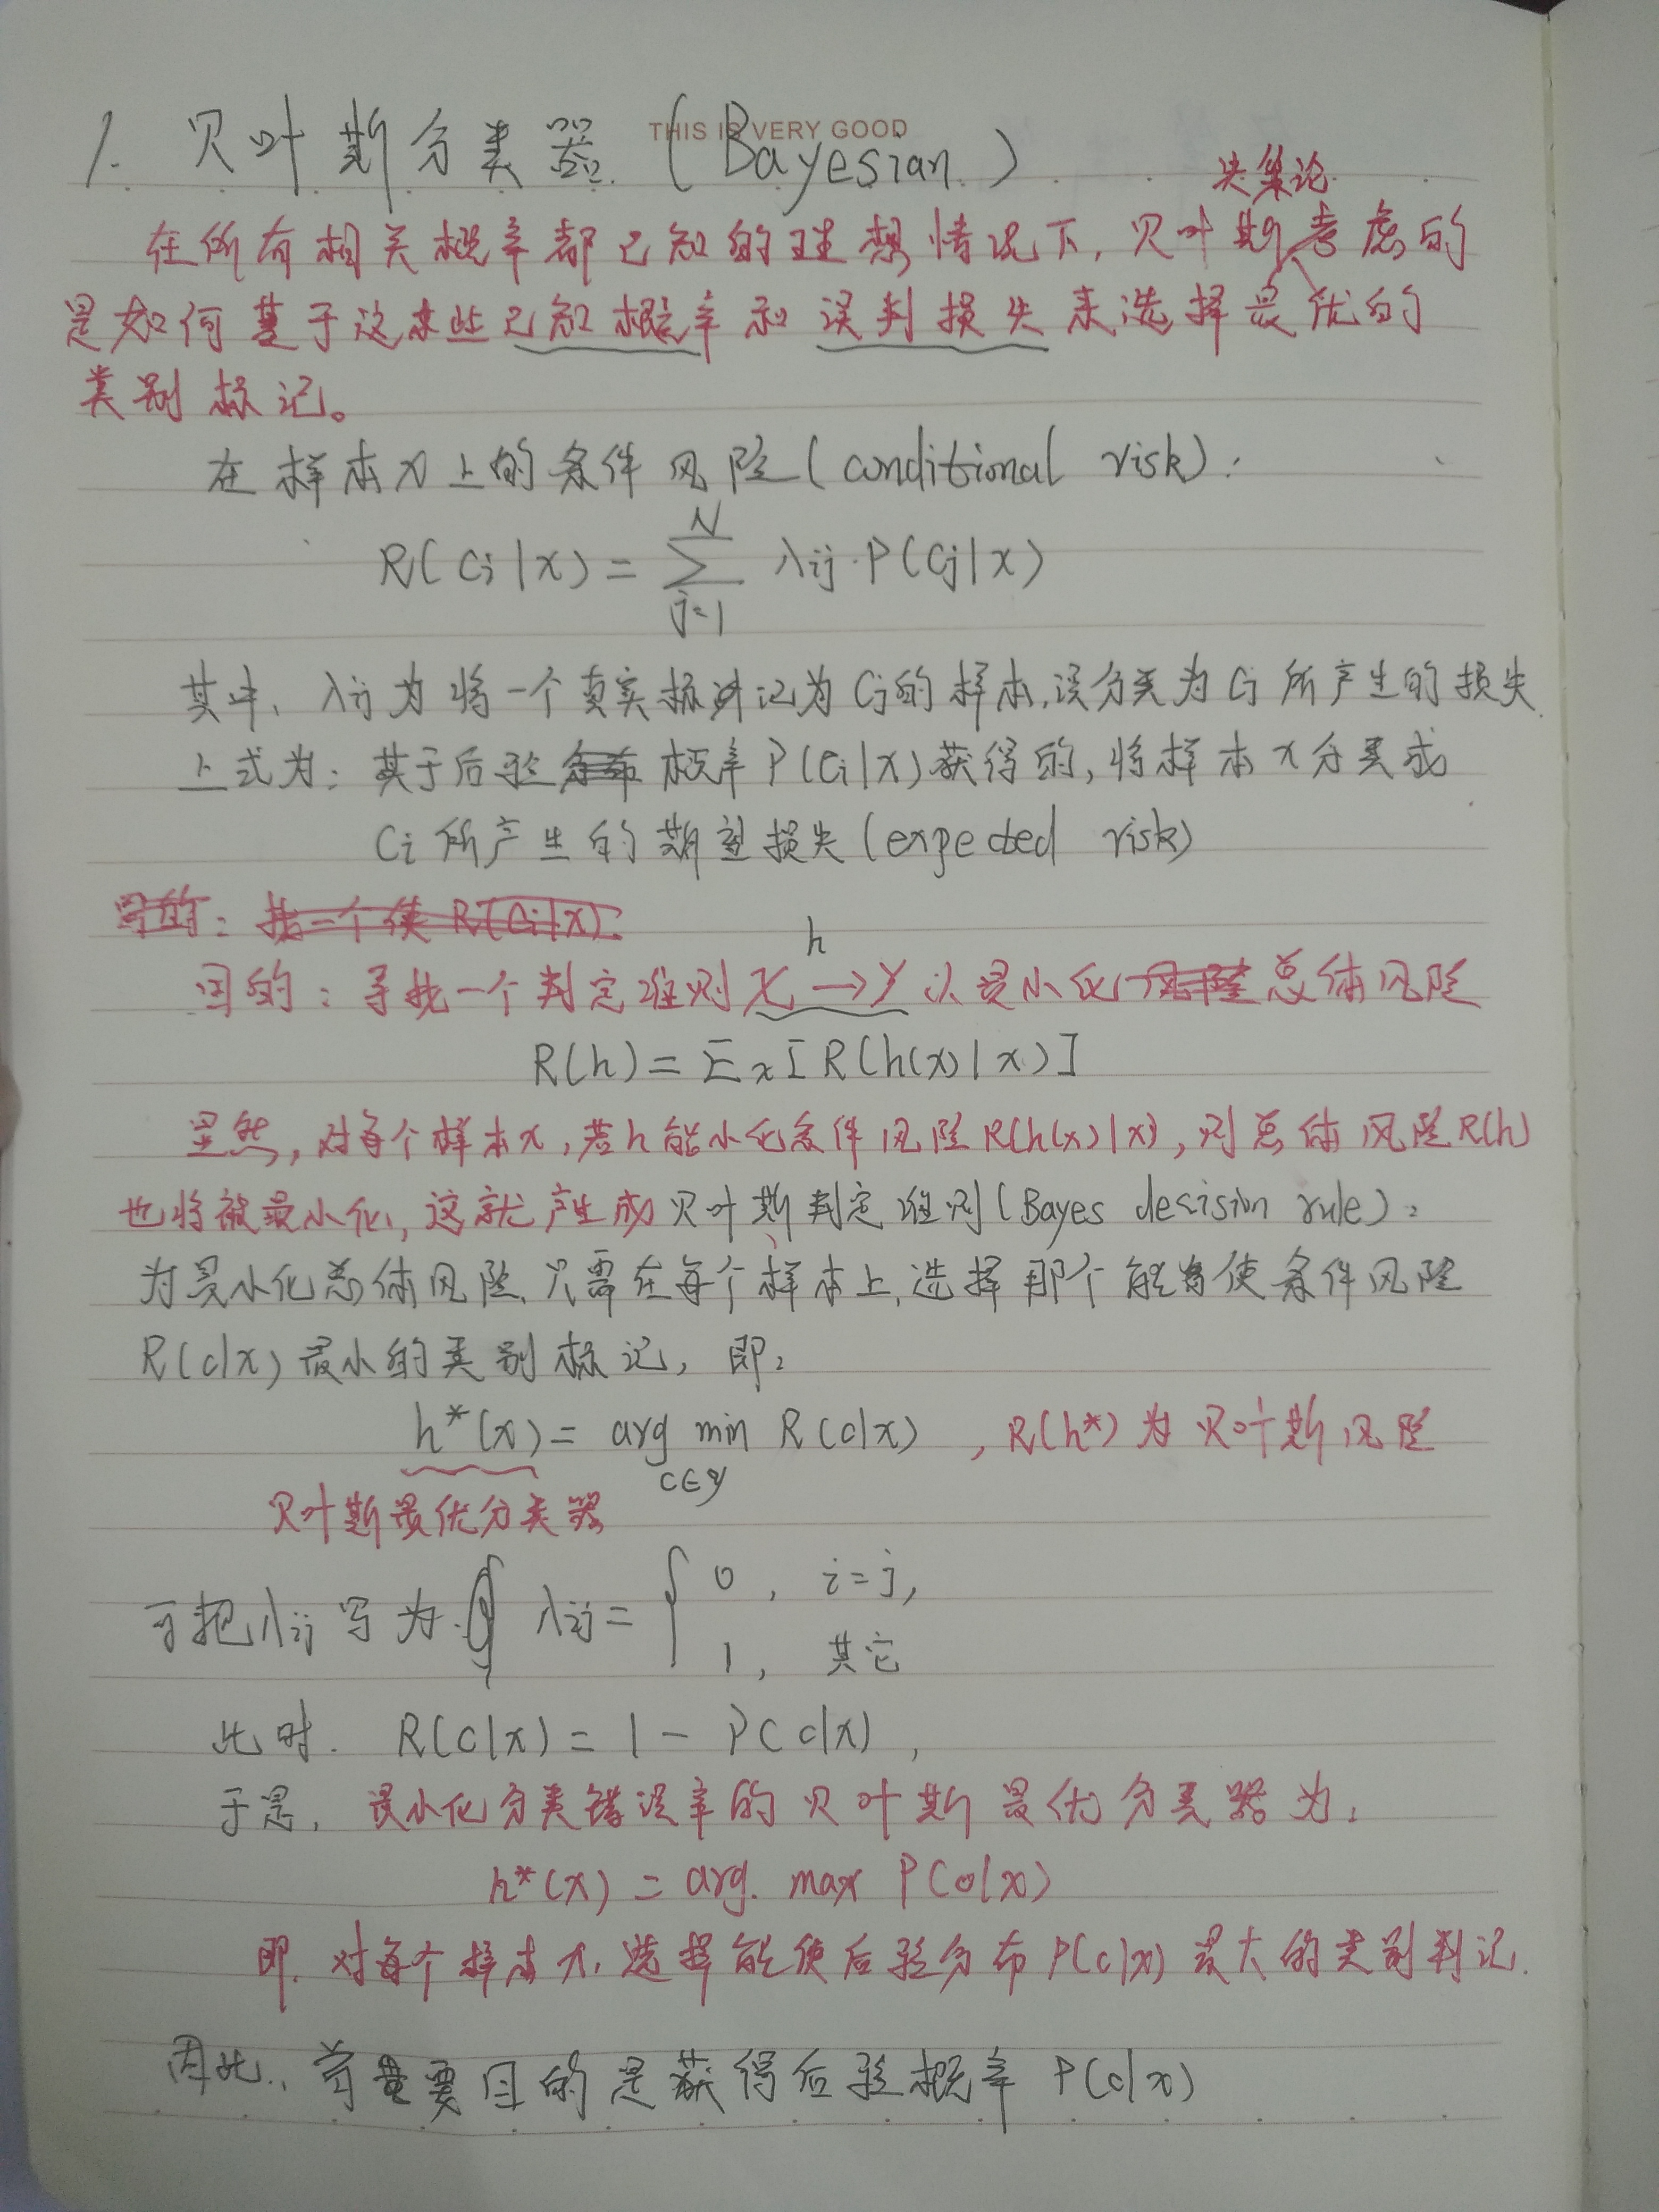 THIS IS VERY GOOD
1. 贝叶斯分类器 (Bayesian)
决策论
在所有相关概率都已知的理想情况下, 贝叶斯考虑的
是如何基于这些已知概率和误判损失来选择最优的
类别标记。
在样本x上的条件风险(conditional risk):
R(Ci|x) = ∑_{j=1}^{N} λij·P(Cj|x)
其中, λij为将一个真实标记为Cj的样本,误分类为Ci所产生的损失.
上式为: 基于后验概率P(Ci|x)获得的, 将样本x分类成
Ci所产生的期望损失(expected risk)
目的: 找一个使R(Ci|x).
h
目的: 寻找一个判定准则 X→Y 以最小化总体风险
R(h) = Ex[R(h(x)|x)]
显然, 对每个样本x, 若h能小化条件风险R(h(x)|x), 则总体风险R(h)
也将被最小化, 这就产生成贝叶斯判定准则(Bayes decision rule):
为最小化总体风险, 只需在每个样本上, 选择那个能使条件风险
R(c|x)最小的类别标记, 即:
h*(x) = arg min R(c|x) , R(h*)为贝叶斯风险
c∈y
贝叶斯最优分类器
可把λij写为 λij = { 0, i=j,
1, 其它
此时. R(c|x) = 1 - P(c|x),
于是, 最小化分类错误率的贝叶斯最优分类器为:
h*(x) = arg. max P(c|x)
即, 对每个样本x, 选择能使后验分布P(c|x)最大的类别判记.
因此, 首要目的是获得后验概率P(c|x)